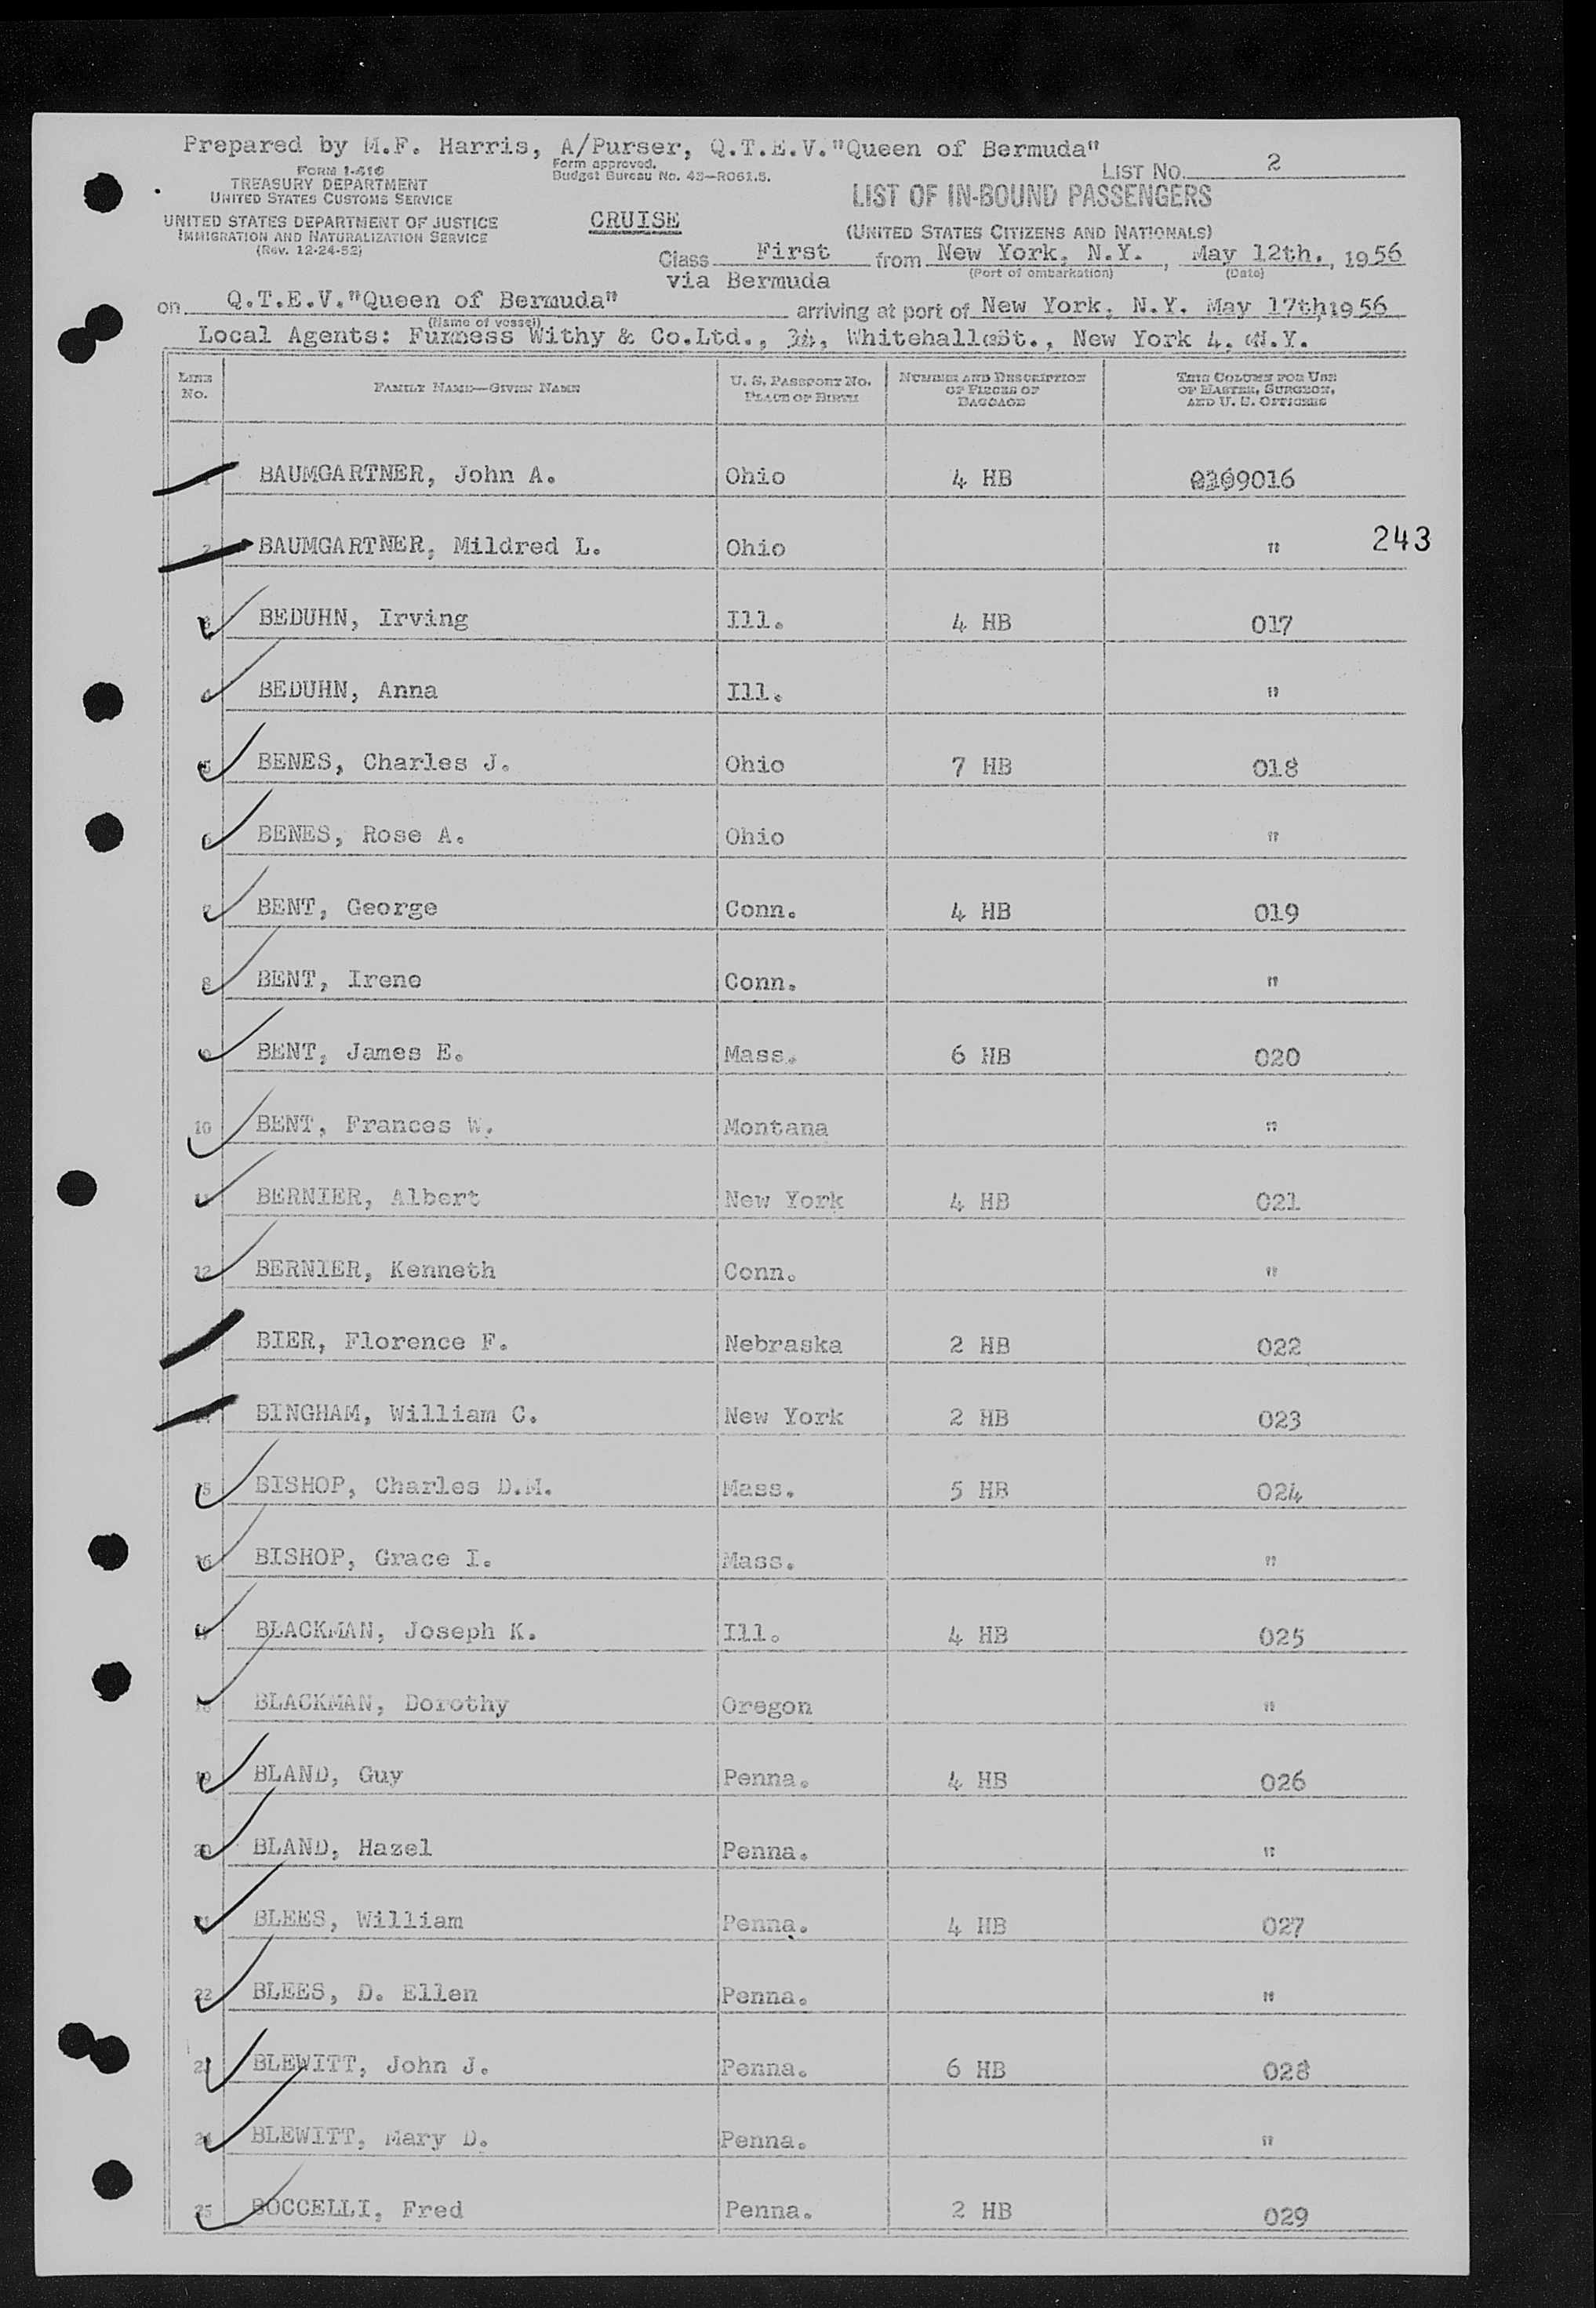 Prepared by M.F. Harris, A/Purser, Q.T.E.V."Queen of Bermuda"
FORM I-418
TREASURY DEPARTMENT
UNITED STATES CUSTOMS SERVICE
UNITED STATES DEPARTMENT OF JUSTICE
IMMIGRATION AND NATURALIZATION SERVICE
(Rev. 12-24-52)
Form approved.
Budget Bureau No. 43-R061.5.
CRUISE
LIST NO. 2
LIST OF IN-BOUND PASSENGERS
(UNITED STATES CITIZENS AND NATIONALS)
Class First from New York, N.Y., May 12th., 1956
(Port of embarkation) (Date)
via Bermuda
on Q.T.E.V."Queen of Bermuda" arriving at port of New York, N.Y. May 17th, 1956
(Name of vessel)
Local Agents: Furness Withy & Co.Ltd., 34, Whitehall St., New York 4, N.Y.
LINE NO. FAMILY NAME—GIVEN NAME U. S. PASSPORT NO. PLACE OF BIRTH NUMBER AND DESCRIPTION OF PIECES OF BAGGAGE THIS COLUMN FOR USE OF MASTER, SURGEON, AND U. S. OFFICERS
1 BAUMGARTNER, John A. Ohio 4 HB 9016
2 BAUMGARTNER, Mildred L. Ohio " 243
3 BEDUHN, Irving Ill. 4 HB 017
4 BEDUHN, Anna Ill. "
5 BENES, Charles J. Ohio 7 HB 018
6 BENES, Rose A. Ohio "
7 BENT, George Conn. 4 HB 019
8 BENT, Irene Conn. "
9 BENT, James E. Mass. 6 HB 020
10 BENT, Frances W. Montana "
11 BERNIER, Albert New York 4 HB 021
12 BERNIER, Kenneth Conn. "
BIER, Florence F. Nebraska 2 HB 022
14 BINGHAM, William C. New York 2 HB 023
15 BISHOP, Charles D.M. Mass. 5 HB 024
16 BISHOP, Grace I. Mass. "
17 BLACKMAN, Joseph K. Ill. 4 HB 025
18 BLACKMAN, Dorothy Oregon "
19 BLAND, Guy Penna. 4 HB 026
20 BLAND, Hazel Penna. "
21 BLEES, William Penna. 4 HB 027
22 BLEES, D. Ellen Penna. "
23 BLEWITT, John J. Penna. 6 HB 028
24 BLEWITT, Mary D. Penna. "
25 BOCCELLI, Fred Penna. 2 HB 029